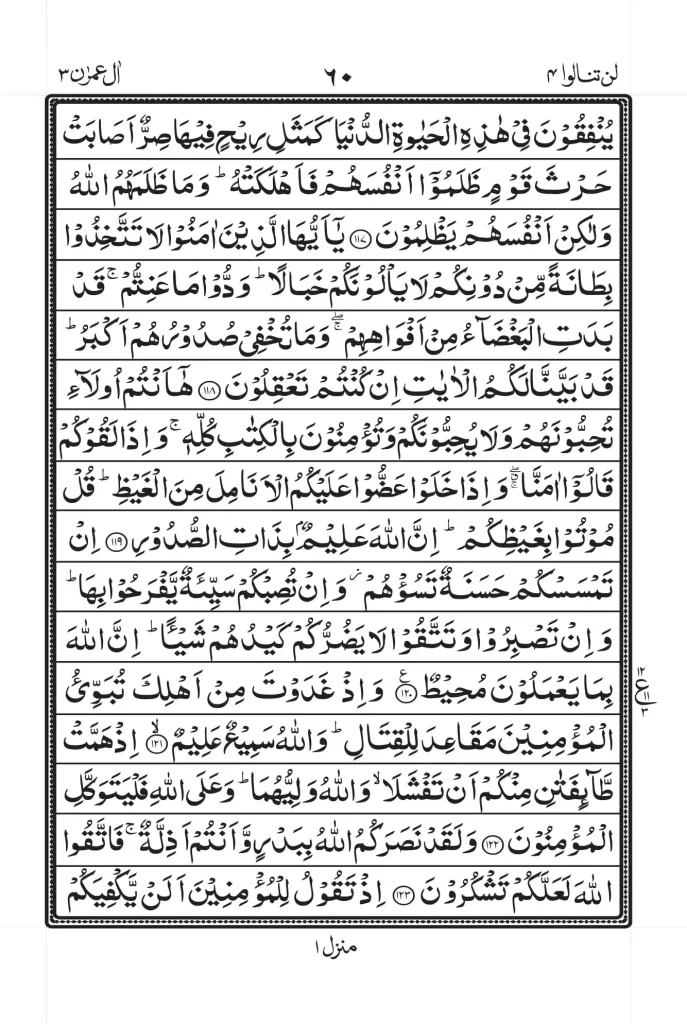 لن تنالوا ۴ ۶۰ اٰل عمرٰن ۳
يُنْفِقُوْنَ فِيْ هٰذِهِ الْحَيٰوةِ الدُّنْيَا كَمَثَلِ رِيْحٍ فِيْهَا صِرٌّ اَصَابَتْ
حَرْثَ قَوْمٍ ظَلَمُوْٓا اَنْفُسَهُمْ فَاَهْلَكَتْهُ ؕ وَمَا ظَلَمَهُمُ اللّٰهُ
وَلٰكِنْ اَنْفُسَهُمْ يَظْلِمُوْنَ ۝۱۱۷ يٰٓاَيُّهَا الَّذِيْنَ اٰمَنُوْا لَا تَتَّخِذُوْا
بِطَانَةً مِّنْ دُوْنِكُمْ لَا يَاْلُوْنَكُمْ خَبَالًا ؕ وَدُّوْا مَا عَنِتُّمْ ۚ قَدْ
بَدَتِ الْبَغْضَآءُ مِنْ اَفْوَاهِهِمْ ۖۚ وَمَا تُخْفِيْ صُدُوْرُهُمْ اَكْبَرُ ؕ
قَدْ بَيَّنَّا لَكُمُ الْاٰيٰتِ اِنْ كُنْتُمْ تَعْقِلُوْنَ ۝۱۱۸ هٰٓاَنْتُمْ اُولَآءِ
تُحِبُّوْنَهُمْ وَلَا يُحِبُّوْنَكُمْ وَتُؤْمِنُوْنَ بِالْكِتٰبِ كُلِّهٖ ۚ وَاِذَا لَقُوْكُمْ
قَالُوْٓا اٰمَنَّا ۖۚ وَاِذَا خَلَوْا عَضُّوْا عَلَيْكُمُ الْاَنَامِلَ مِنَ الْغَيْظِ ؕ قُلْ
مُوْتُوْا بِغَيْظِكُمْ ؕ اِنَّ اللّٰهَ عَلِيْمٌۢ بِذَاتِ الصُّدُوْرِ ۝۱۱۹ اِنْ
تَمْسَسْكُمْ حَسَنَةٌ تَسُؤْهُمْ ؗ وَاِنْ تُصِبْكُمْ سَيِّئَةٌ يَّفْرَحُوْا بِهَا ؕ
وَاِنْ تَصْبِرُوْا وَتَتَّقُوْا لَا يَضُرُّكُمْ كَيْدُهُمْ شَيْـًٔا ؕ اِنَّ اللّٰهَ
بِمَا يَعْمَلُوْنَ مُحِيْطٌ ۝۱۲۰ ع وَاِذْ غَدَوْتَ مِنْ اَهْلِكَ تُبَوِّئُ
۱۲
ع ۱۱
۳
الْمُؤْمِنِيْنَ مَقَاعِدَ لِلْقِتَالِ ؕ وَاللّٰهُ سَمِيْعٌ عَلِيْمٌ ۝۱۲۱ ۙ اِذْ هَمَّتْ
طَّآئِفَتٰنِ مِنْكُمْ اَنْ تَفْشَلَا ۙ وَاللّٰهُ وَلِيُّهُمَا ؕ وَعَلَى اللّٰهِ فَلْيَتَوَكَّلِ
الْمُؤْمِنُوْنَ ۝۱۲۲ وَلَقَدْ نَصَرَكُمُ اللّٰهُ بِبَدْرٍ وَّاَنْتُمْ اَذِلَّةٌ ۚ فَاتَّقُوا
اللّٰهَ لَعَلَّكُمْ تَشْكُرُوْنَ ۝۱۲۳ اِذْ تَقُوْلُ لِلْمُؤْمِنِيْنَ اَلَنْ يَّكْفِيَكُمْ
منزل ۱